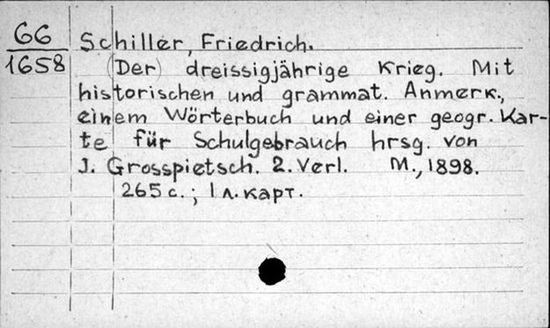 66
1658
Schiller, Friedrich.
(Der) dreissigjährige Krieg. Mit
historischen und grammat. Anmerk.,
einem Wörterbuch und einer geogr. Kar-
te für Schulgebrauch hrsg. von
J. Grosspietsch. 2. Verl. M., 1898.
265 с.; 1 л. карт.